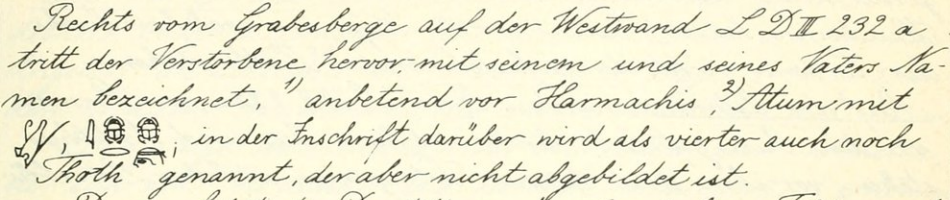 Rechts vom Grabesberge auf der Westwand L D III 232 a
tritt der Verstorbene hervor, mit seinem und seines Vaters Na-
men bezeichnet, 1) anbetend vor Harmachis, 2) Atum mit
in der Inschrift darüber wird als vierter auch noch
Thoth genannt, der aber nicht abgebildet ist.